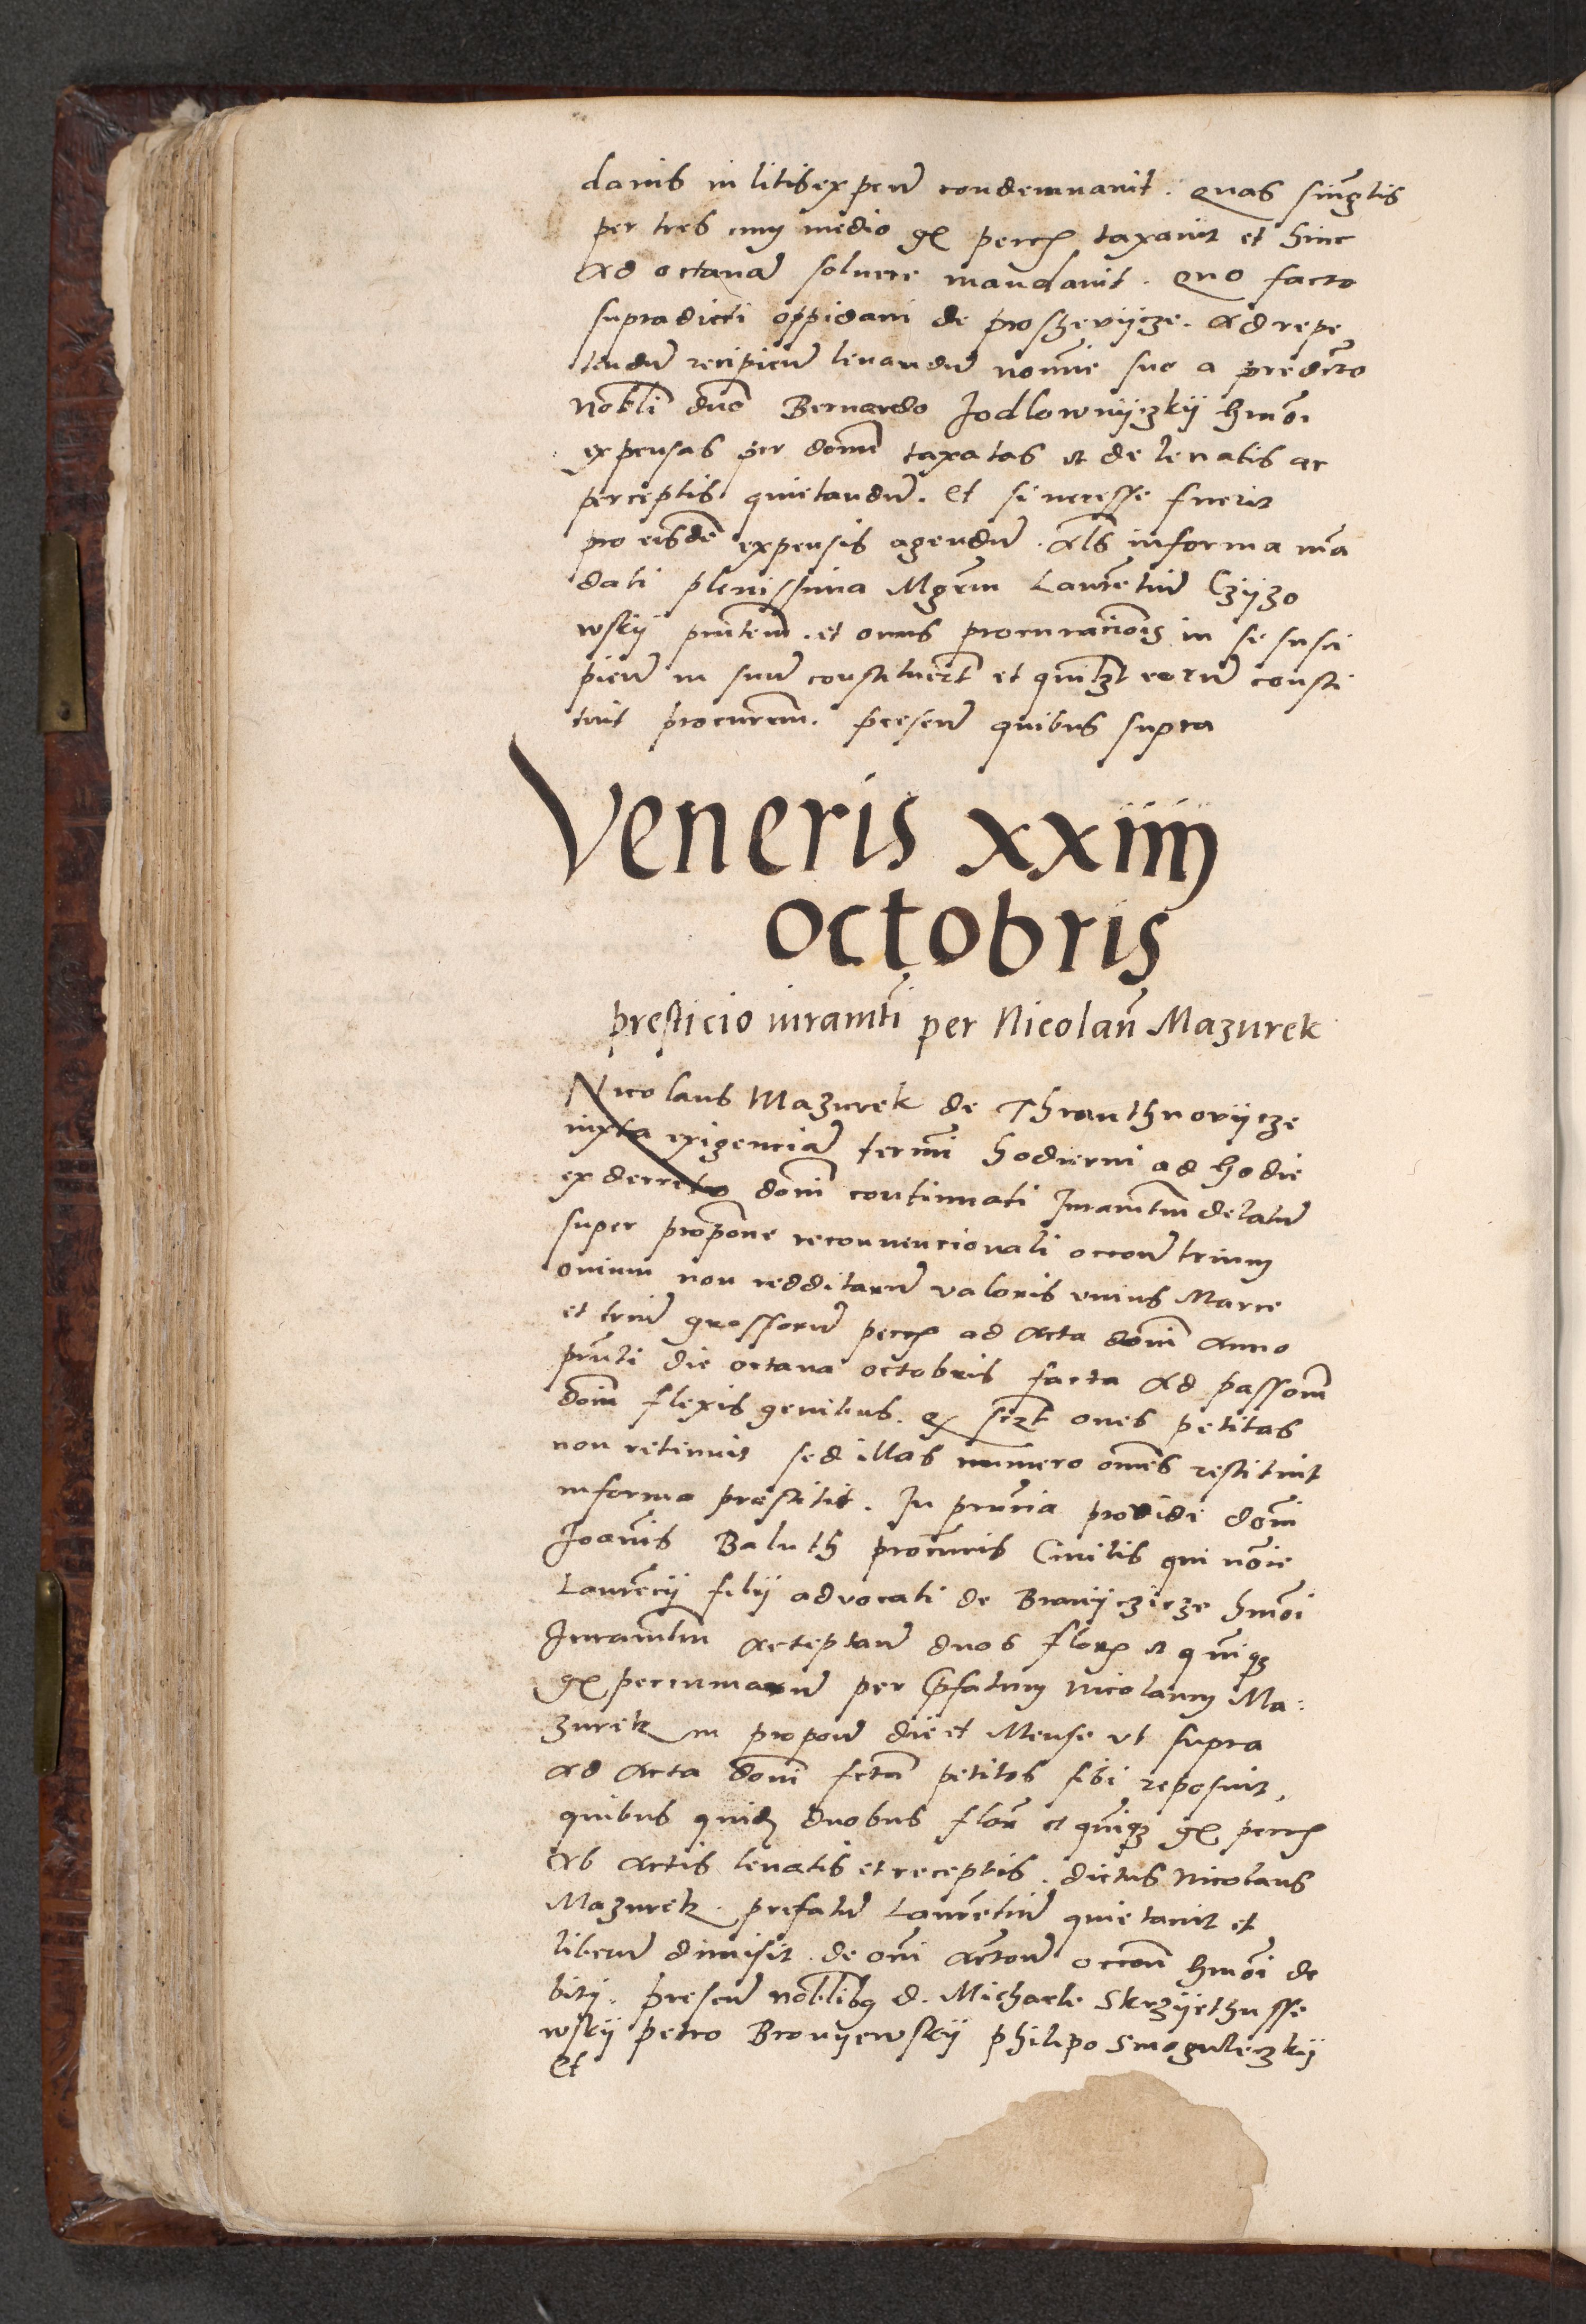 danis in litis expen condemnavit. Quas singlis
per tres cum medio gr pecch taxavit et hinc
ad octavam solvere mandavit. Quo facto
supradicti oppidani de proszevycze. Ad repe
tendum recipiend levandum nomine suo a predicto
nobli dno Bernardo Jodlownyczky hmoi
expensas per domin taxatas et de levatis ac
perceptis quietandum. Et si necesse fuerit
pro eisdem expensis agendum. Als in forma man
dati plenissima Mgrm Laurentium Czyzo
wsky pntem. et onus procuracionis in se susci
pien in suum constituert et quilzt eorum consti
tuit procurem. presen quibus supra
Veneris xxiiij
octobris
presticio iuramti per Nicolaum Mazurek
Nicolaus Mazurek de Thrauthnovycze
iuxta exigenciam termini hodierni ad hodie
ex decreto domi continuati Juramtum delatum
super propone reconvencionali occone trium
ovium non redditarum valoris unius Marce
et trium grossorum pecch ad Acta domi anno
pnti die octava octobris facta Ad passom
domi flexis genibus. Q sczt oves petitas
non retinuit sed illas numero omnes restituit
in forma prestitit. In pncia providi domi
Joannis Baluth procuris Civilis qui noie
Laurency fily advocati de Branyczicze hmoi
Juramtum Acceptan duos flor et quinqz
gr pecuniarum per prefatum Nicolaum Ma:
zurek in propone die et Mense ut supra
Ad Acta domi fctam petitos sibi reposuit,
quibus quidem duobus flor et quinqz gr pecch
Ab Actis levatis et receptis. dictus Nicolaus
Mazurek. prefatum Laurentium quietavit et
liberum dimisit. de omni Actone occone hmoi de
biti. presen noblibus d. Michaele Skrzyethusse
wsky petro Bronyewsky philipo Smoguleczky
Et